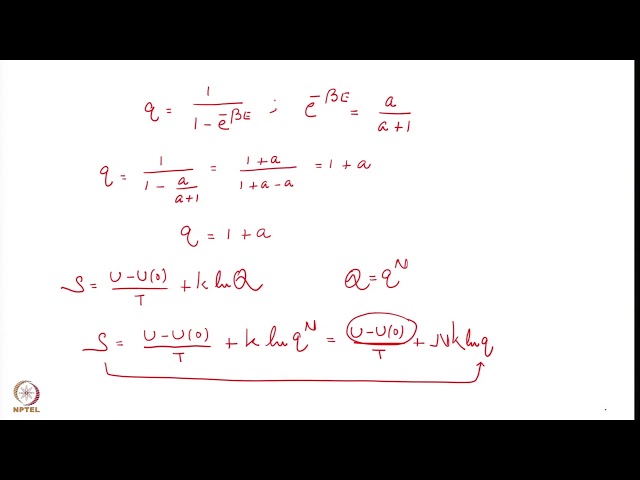 q = 1 / (1 - e^{-βE}) ; e^{-βE} = a / (a+1)
q = 1 / (1 - a/(a+1)) = (1+a) / (1+a-a) = 1+a
q = 1+a
S = (U-U(0)) / T + k ln Q    Q = q^N
S = (U-U(0)) / T + k ln q^N = (U-U(0)) / T + Nk ln q
NPTEL